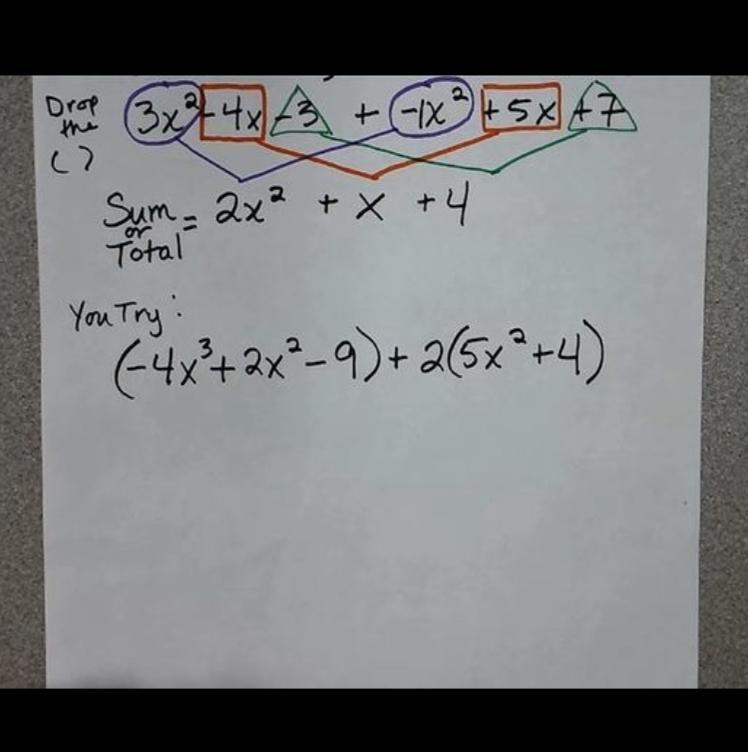 Drop the ( ) 3x² - 4x - 3 + -1x² + 5x + 7
Sum or Total = 2x² + x + 4
You Try:
(-4x³+2x²-9)+2(5x²+4)